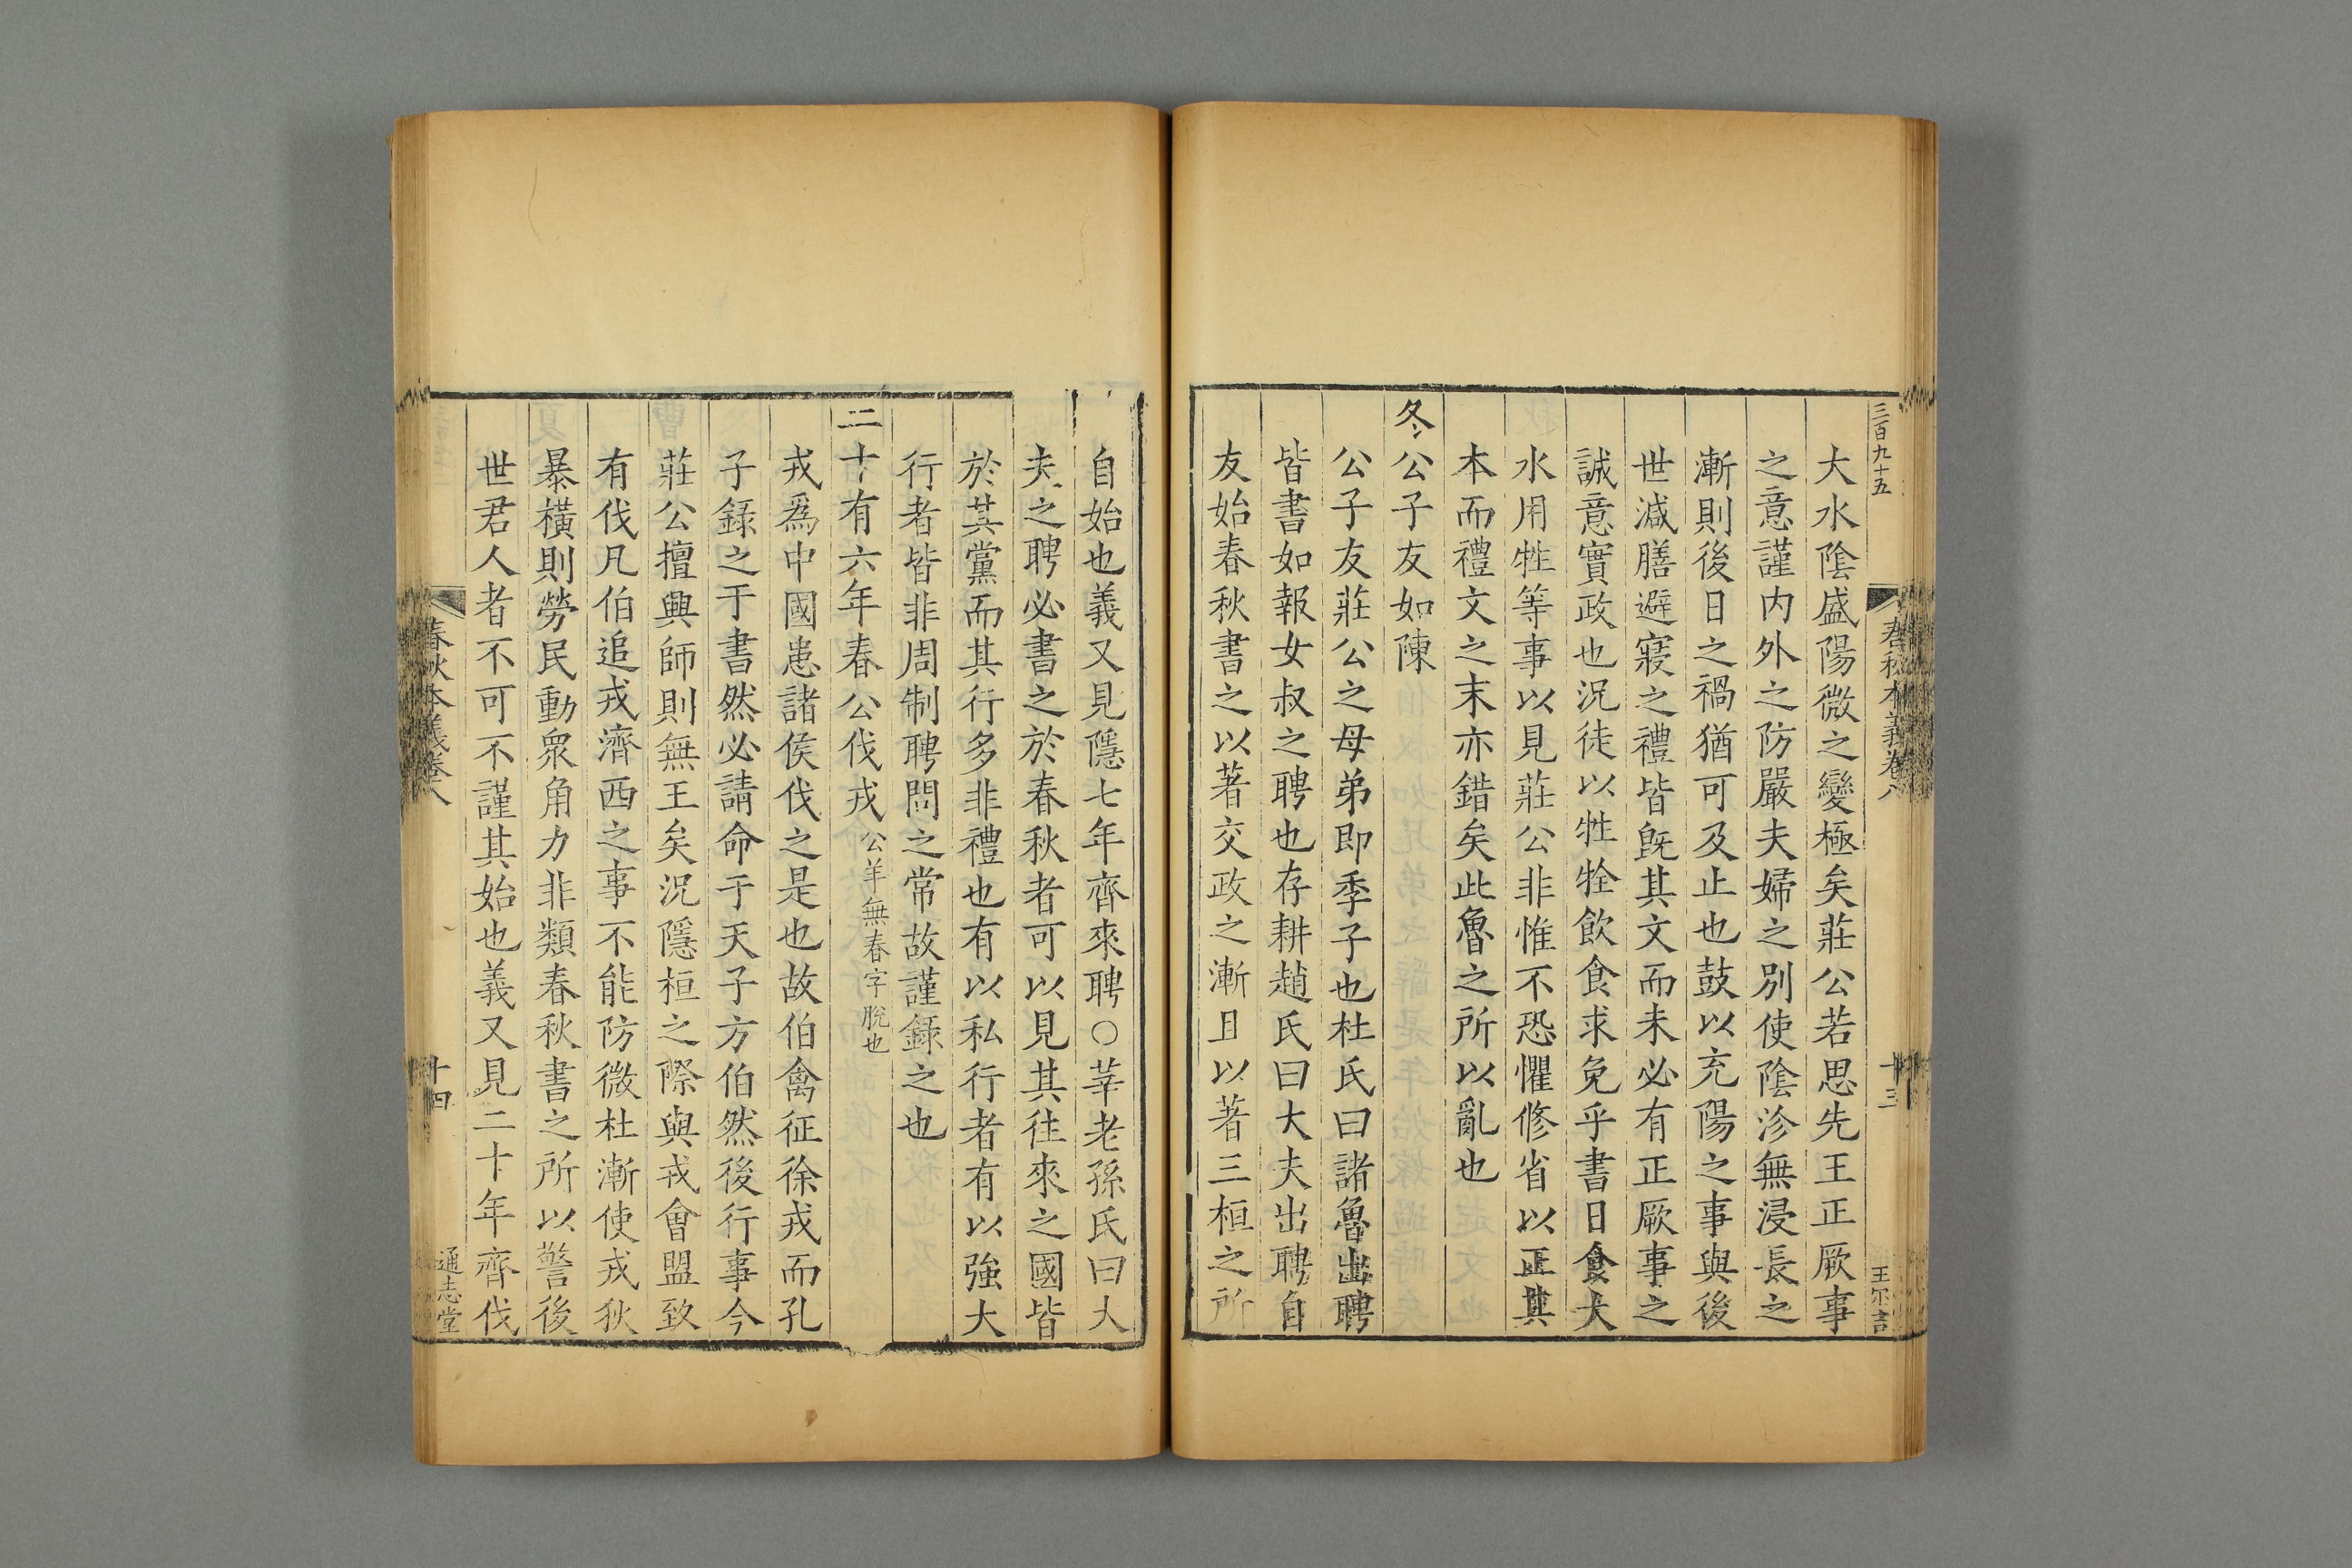 三百九十五
春秋本義卷八
十三
王尔言
大水陰盛陽微之變極矣莊公若思先王正厥事
之意謹内外之防嚴夫婦之別使陰沴無浸長之
漸則後日之禍猶可及止也鼓以充陽之事與後
世減膳避寢之禮皆旣其文而未必有正厥事之
誠意實政也況徒以牲牷飲食求免乎書日食大
水用牲等事以見莊公非惟不恐懼修省以正其
本而禮文之末亦錯矣此魯之所以亂也
冬公子友如陳
公子友莊公之母弟即季子也杜氏曰諸魯出聘
皆書如報女叔之聘也存耕趙氏曰大夫出聘自
友始春秋書之以著交政之漸且以著三桓之所
自始也義又見隱七年齊來聘○莘老孫氏曰大
夫之聘必書之於春秋者可以見其徃來之國皆
於其黨而其行多非禮也有以私行者有以強大
行者皆非周制聘問之常故謹錄之也
二十有六年春公伐戎公羊無春字脫也
戎爲中國患諸侯伐之是也故伯禽征徐戎而孔
子錄之于書然必請命于天子方伯然後行事今
莊公擅興師則無王矣況隱桓之際與戎會盟致
有伐凡伯追戎濟西之事不能防微杜漸使戎狄
暴橫則勞民動衆角力非類春秋書之所以警後
世君人者不可不謹其始也義又見二十年齊伐
春秋本義卷八
十四
通志堂